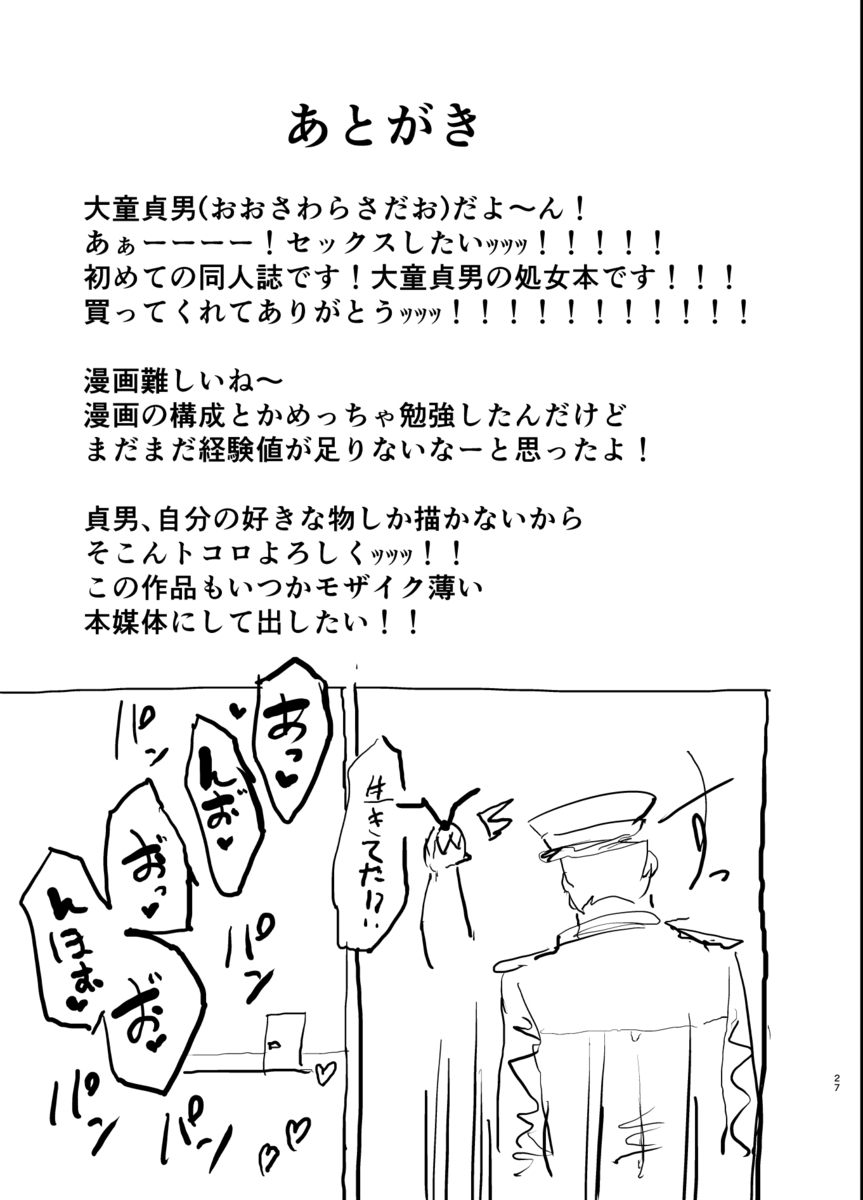 あとがき
大童貞男(おおさわらさだお)だよ〜ん！
あぁーーーー！セックスしたいｯｯｯ！！！！！
初めての同人誌です！大童貞男の処女本です！！！
買ってくれてありがとうｯｯｯ！！！！！！！！！！！
漫画難しいね〜
漫画の構成とかめっちゃ勉強したんだけど
まだまだ経験値が足りないなーと思ったよ！
貞男、自分の好きな物しか描かないから
そこんトコロよろしくｯｯｯ！！
この作品もいつかモザイク薄い
本媒体にして出したい！！
すっ
生きてた!?
あっ♥
んお゛♥
お゛っ♥
んほお♥
お゛♥
パン
パン
パン
パン
パン
27